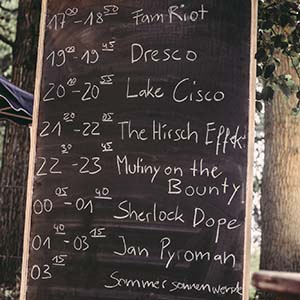 17⁰⁰-18⁵⁰ Fam Riot
19⁰⁰-19⁴⁵ Dresco
20⁰⁰-20⁵⁵ Lake Cisco
21²⁰-22⁰⁵ The Hirsch Effekt
22³⁰-23⁴⁵ Mutiny on the
Bounty
00⁰⁵-01⁴⁰ Sherlock Dope
01⁴⁰-03¹⁵ Jan Pyroman
03¹⁵
Sommersonnenwende